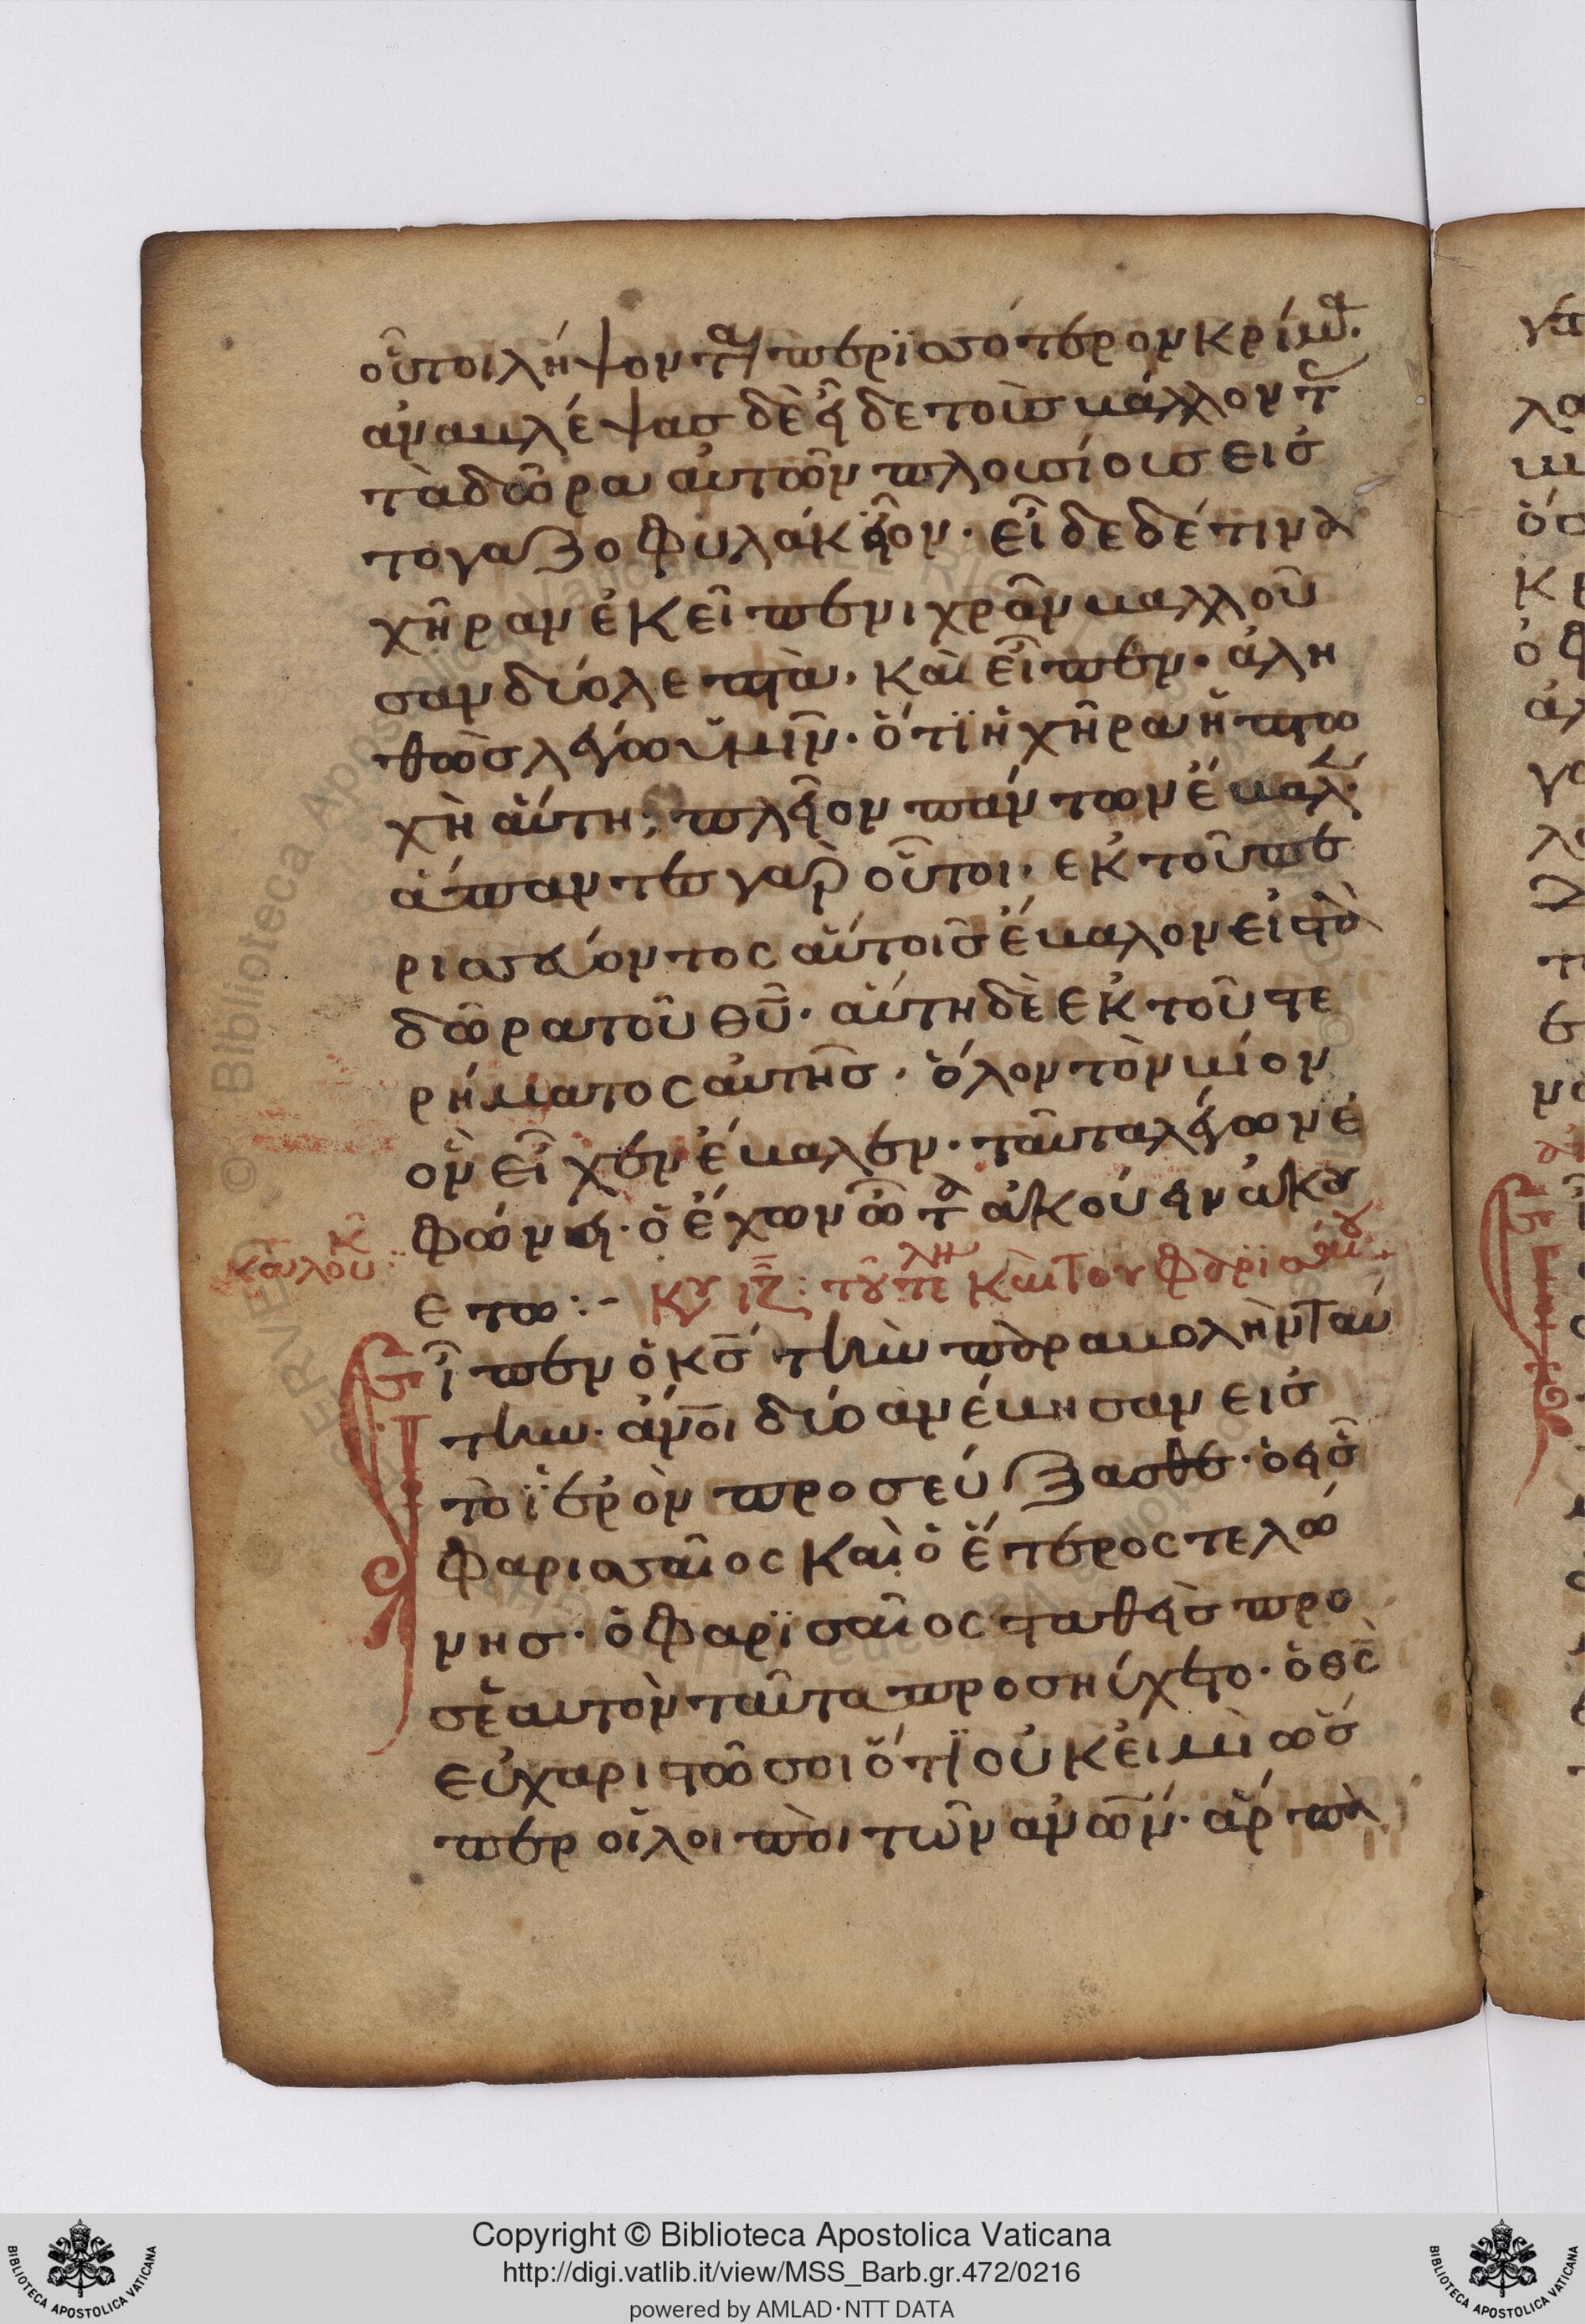 οὗτοι λήψονται περϊσσότερον κρίμα.
ἀναβλέψας δὲ εἶδε τοὺς βάλλοντ
τὰ δῶρα αὐτῶν πλουσίους εἰς
το γαζοφυλάκειον. εἶδε δέ τινα
χῆραν ἐκεῖ πενιχρὰν βαλλοῦ
σαν δύο λεπτὰ. καὶ εἶπεν. ἀλη
θῶς λέγω ὑμῖν. ὅτϊ ἡ χῆρα ἡ πτω
χὴ αὕτη; πλεῖον πάντων ἔβαλ.
ἅπαντες γαρ οὗτοι. ἐκ τοῦ πε
ρισσεύοντος αὐτοῖς ἔβαλον εἰς τὰ
δῶρα τοῦ θῦ. αὕτη δὲ ἐκ τοῦ στε
ρήματος αὐτῆς. ὅλον τὸν βίον
ὃν εἶχεν ἔβαλεν. ταῦτα λέγων ἐ
φώνει. ὁ ἔχων ὦτα ἀκούειν ἀκου
ετω:-
κυ ιζ: τοῦ τελη καὶ του φαρισαίου
εἶπεν ὁ κς τὴν παραβολὴν ταύ
την. ἄνοι δύο ἀνέβησαν εἰς
τὸ ϊερὸν προσεύξασθε. ὁ εἷς
φαρισσαῖος καὶ ὁ ἕτερος τελώ
νης. ὁ φαρϊσαῖος σταθεὶς προ
σεαυτὸν ταῦτα προσηύχετο. ὁ θς
εὐχαριστῶ σοι ὅτϊ οὐκ εἰμὶ ὡσ
περ οἱ λοιποὶ τῶν ἀνων. ἅρπα
Copyright © Biblioteca Apostolica Vaticana
http://digi.vatlib.it/view/MSS_Barb.gr.472/0216
powered by AMLAD·NTT DATA
BIBLIOTECA APOSTOLICA VATICANA
BIBLIOTECA APOSTOLICA VATICANA